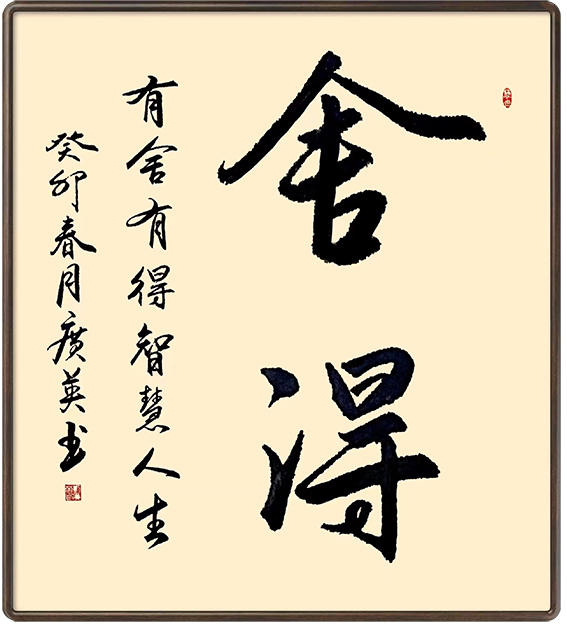 舍得
有舍有得智慧人生
癸卯春月广英书